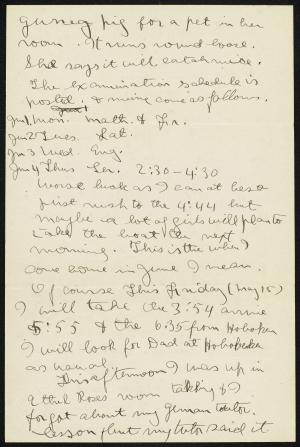 guinea pig for a pet in her
room. It runs round loose.
She says it will catch mice.
The examination schedule is
posted. & mine come as follows.
Jun 1 Mon. Math. & Fr.
Jun 2 Tues. Lat.
Jun 3 Wed. Eng.
Jun 4 Thus Ger. 2:30-4:30
Worse luck as I can at best
just rush to the 4:44 but
maybe a lot of girls will plan to
take the boat the next
morning. This is the when I
come home in June I mean.
Of course this Friday (May 15)
I will take the 3:54 arrive
5:55 & the 6:35 from Hoboken
I will look for Dad at Hoboken
as usual.
This afternoon I was up in
Ethel Roses room talking & I
forgot about my German tutor.
lesson (but my tutor said it